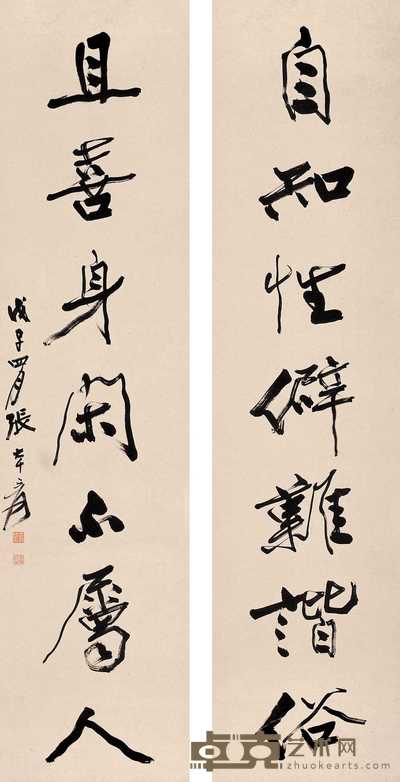 自知性僻難諧俗
且喜身閑不屬人
戊子四月張大千爰
卓克艺术网
zhuokearts.com